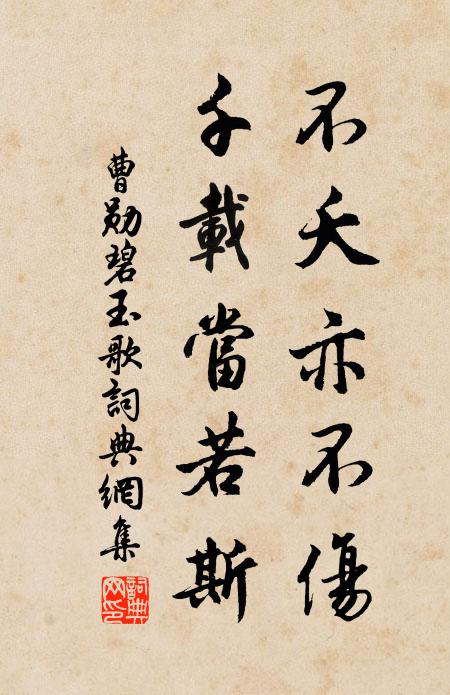 不夭亦不傷
千載當若斯
曹勛碧玉歌詞典網集
詞典网印